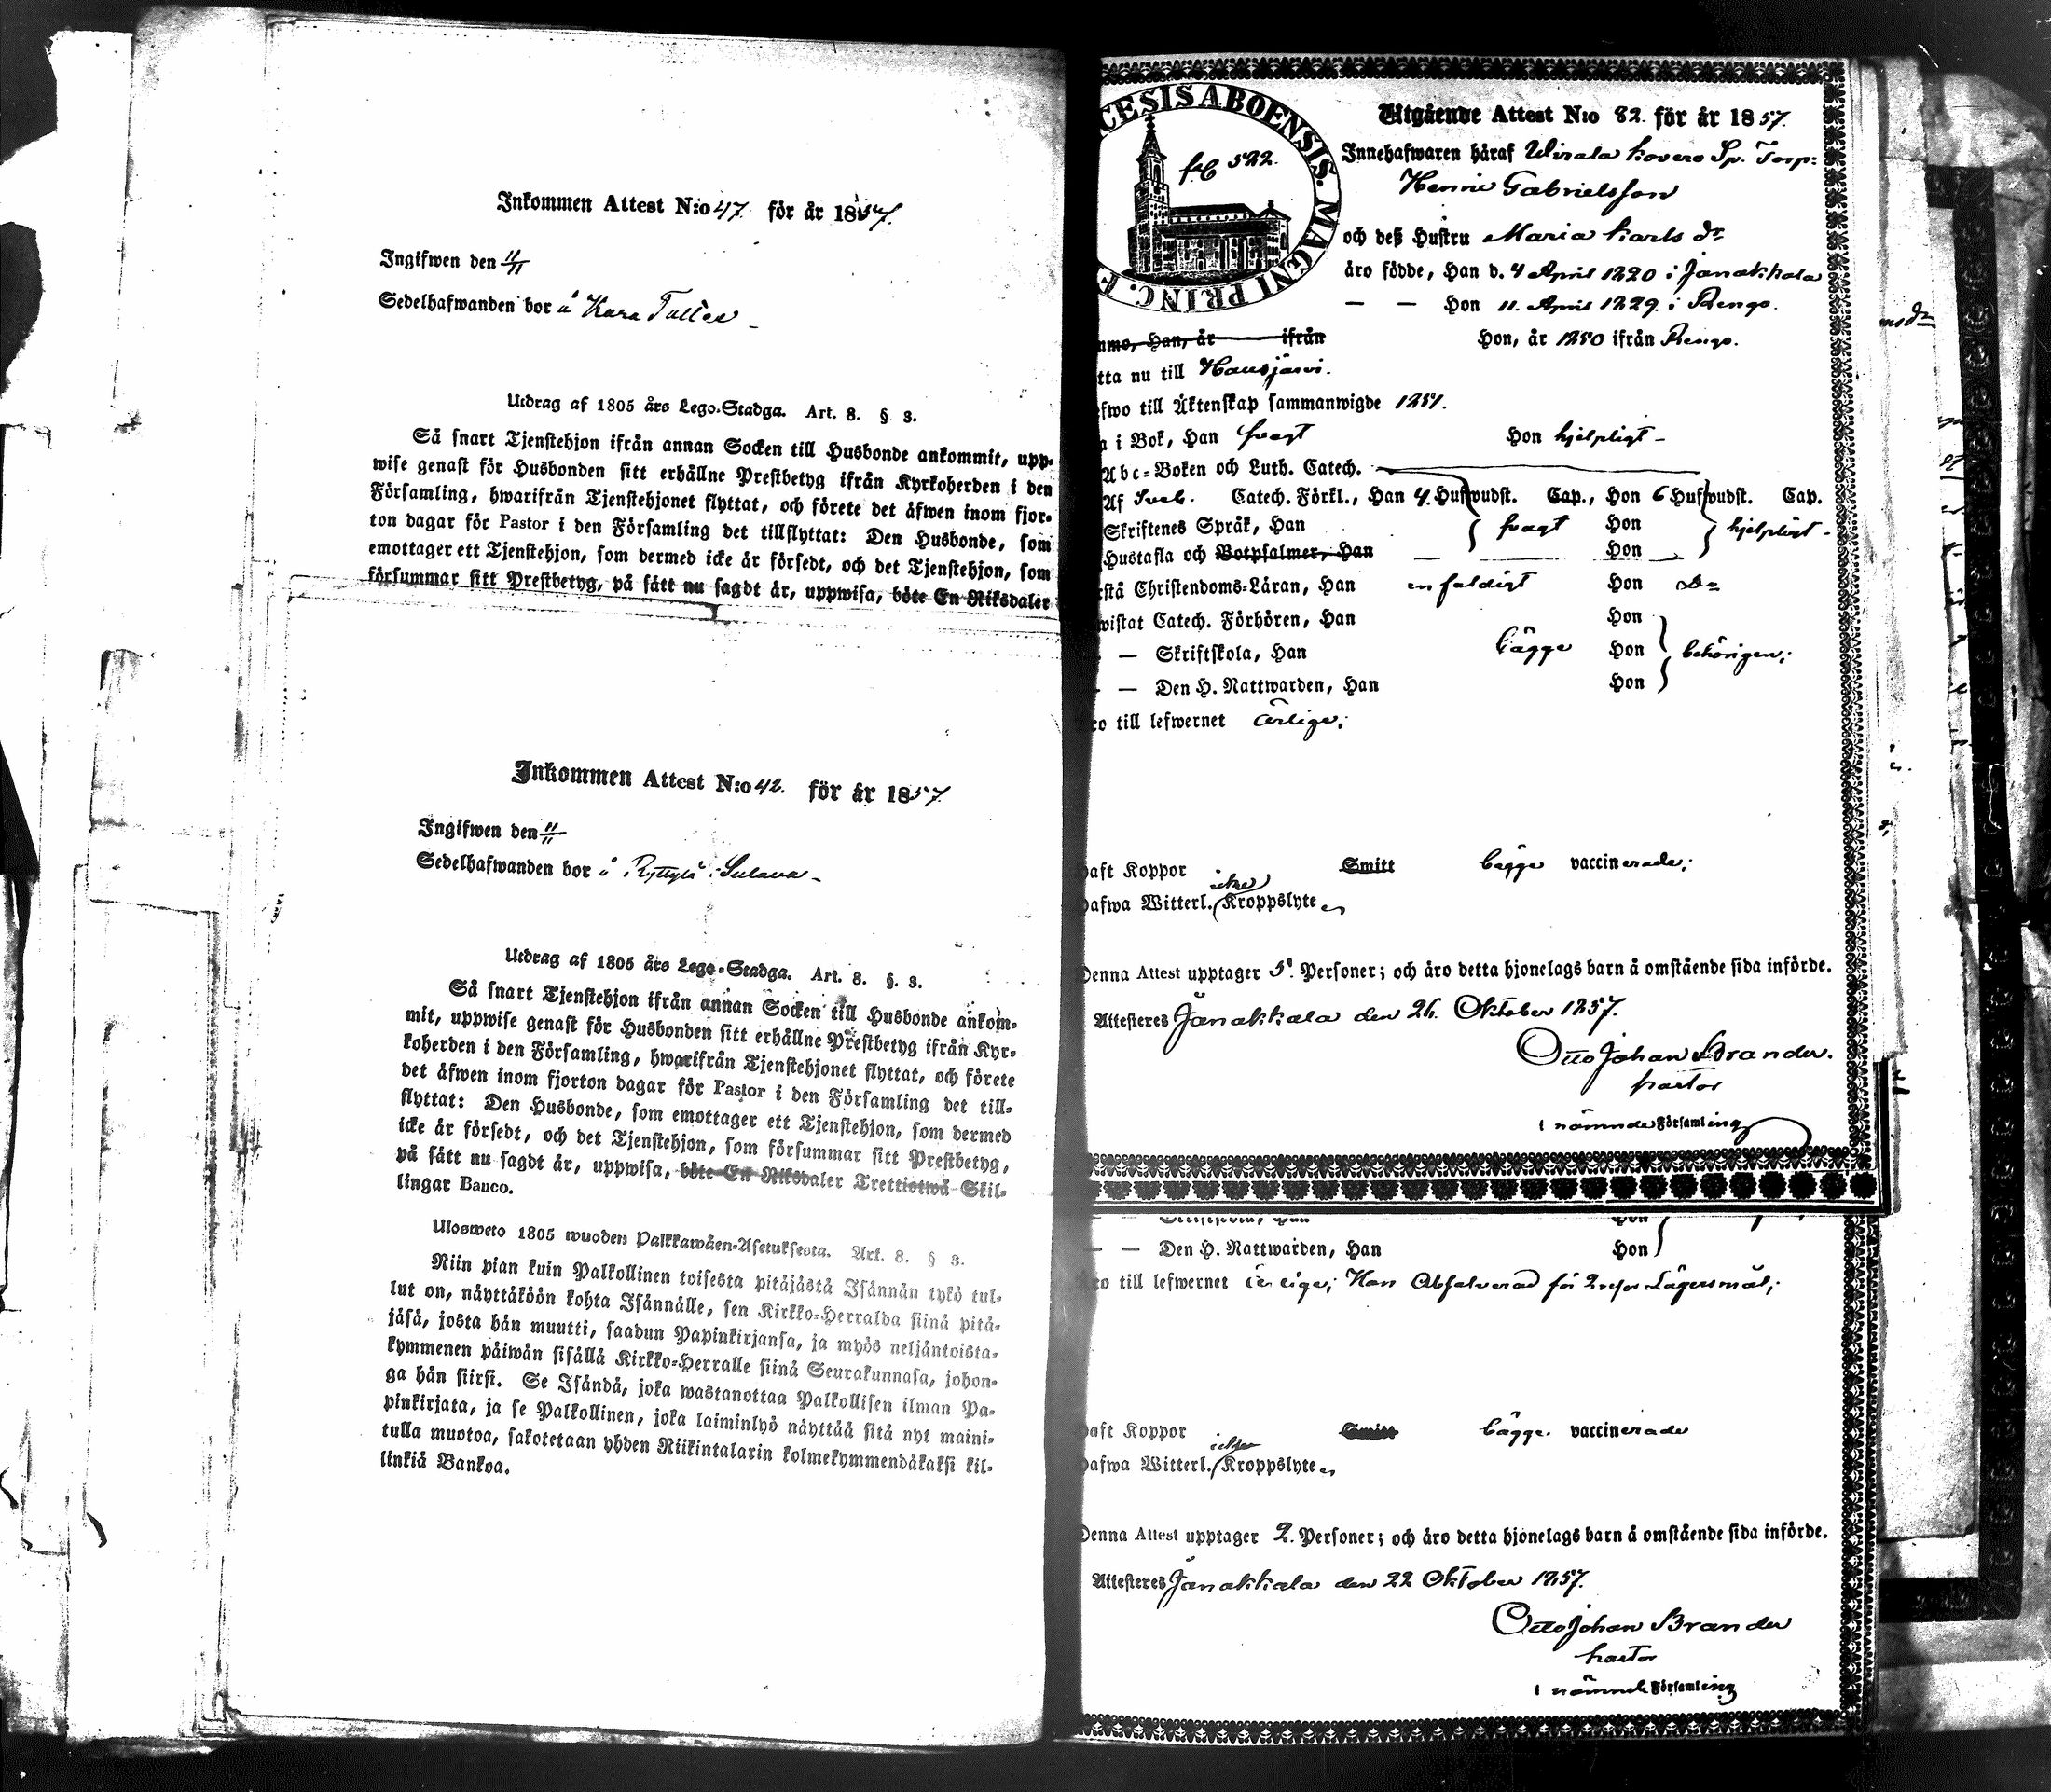 Inkommen Attest N:o 47. för år 1857.
Ingifwen den 11/11
Sedelhafwanden bor å Kara Tallee
Utdrag af 1805 års Lego-Stadga. Art. 8. § 3.
Så snart Tjenstehjon ifrån annan Socken till Husbonde ankommit, upp-
wise genast för Husbonden sitt erhållne Prestbetyg ifrån Kyrkoherden i den
Församling, hwarifrån Tjenstehjonet flyttat, och förete det äfwen inom fjor-
ton dagar för Pastor i den Församling det tillflyttat: Den Husbonde, som
emottager ett Tjenstehjon, som dermed icke är försedt, och det Tjenstehjon, som
försummar sitt Prestbetyg, på sätt nu sagdt är, uppwisa, böte En Riksdaler
Inkommen Attest N:o 42. för år 1857.
Ingifwen den 11/11
Sedelhafwanden bor å Ryttylä Sulava
Utdrag af 1805 års Lego-Stadga. Art. 8. §. 3.
Så snart Tjenstehjon ifrån annan Socken till Husbonde ankom-
mit, uppwise genast för Husbonden sitt erhållne Prestbetyg ifrån Kyr-
koherden i den Församling, hwarifrån Tjenstehjonet flyttat, och förete
det äfwen inom fjorton dagar för Pastor i den Församling det till-
flyttat: Den Husbonde, som emottager ett Tjenstehjon, som dermed
icke är försedt, och det Tjenstehjon, som försummar sitt Prestbetyg,
på sätt nu sagdt är, uppwisa, böte En Riksdaler Trettiotwå Skil-
lingar Banco.
Ulosweto 1805 wuoden Palkkawäen-Asetuksesta. Art. 8. § 3.
Niin pian kuin Palkollinen toisesta pitäjästä Isännän tykö tul-
lut on, näyttäköön kohta Isännälle, sen Kirkko-Herralda siinä pitä-
jäsä, josta hän muutti, saadun Papinkirjansa, ja myös neljäntoista-
kymmenen päiwän sisällä Kirkko-Herralle siinä Seurakunnasa, johon-
ga hän siirsi. Se Isändä, joka wastanottaa Palkollisen ilman Pa-
pinkirjata, ja se Palkollinen, joka laiminlyö näyttää sitä nyt maini-
tulla muotoa, sakotetaan yhden Riikintalarin kolmekymmendäkaksi kil-
linkiä Bankoa.
CESIS ABOENSIS. MAGNI PRINC. F
522.
Utgående Attest N:o 82. för år 1857.
Innehafwaren häraf Wirala Kovero Sp. Torp:
Henric Gabrielsson
och deß Hustru Maria Karls dr
äro födde, Han d. 4 April 1820 i Janakkala
— — Hon 11. April 1829. i Rengo.
mmo, Han, år ifrån Hon, år 1850 ifrån Rengo.
tta nu till Hausjärvi.
fwo till Äktenskap sammanwigde 1851.
a i Bok, Han svagt Hon hjelpligt
Abc-Boken och Luth. Catech.
Af Sveb. Catech. Förkl., Han 4 Hufwudst. Cap., Hon 6 Hufwudst. Cap.
Skriftenes Språk, Han svagt Hon hjelpligt
Hustafla och Botpsalmer, Han — Hon —
rstå Christendoms-Läran, Han enfaldigt Hon Do
wistat Catech. Förhören, Han Hon
— Skriftskola, Han bägge Hon behörigen;
— — Den H. Nattwarden, Han Hon
ro till lefwernet ärlige;
haft Koppor Smitt bägge vaccinerade;
hafwa Witterl. icke Kroppslyte
Denna Attest upptager 5. Personer; och äro detta hjonelags barn å omstående sida införde.
Attesteres Janakkala den 26. Oktober 1857.
Otto Johan Brander.
Pastor
i nämnde Församling
— — Den H. Nattwarden, Han Hon
ro till lefwernet ärlige; Han Absolverad för Lägersmål;
haft Koppor Smitt bägge. vaccinerade
hafwa Witterl. icke Kroppslyte
Denna Attest upptager 2. Personer; och äro detta hjonelags barn å omstående sida införde.
Attesteres Janakkala den 22 Oktober 1857.
Otto Johan Brander
Pastor
i nämnde Församling